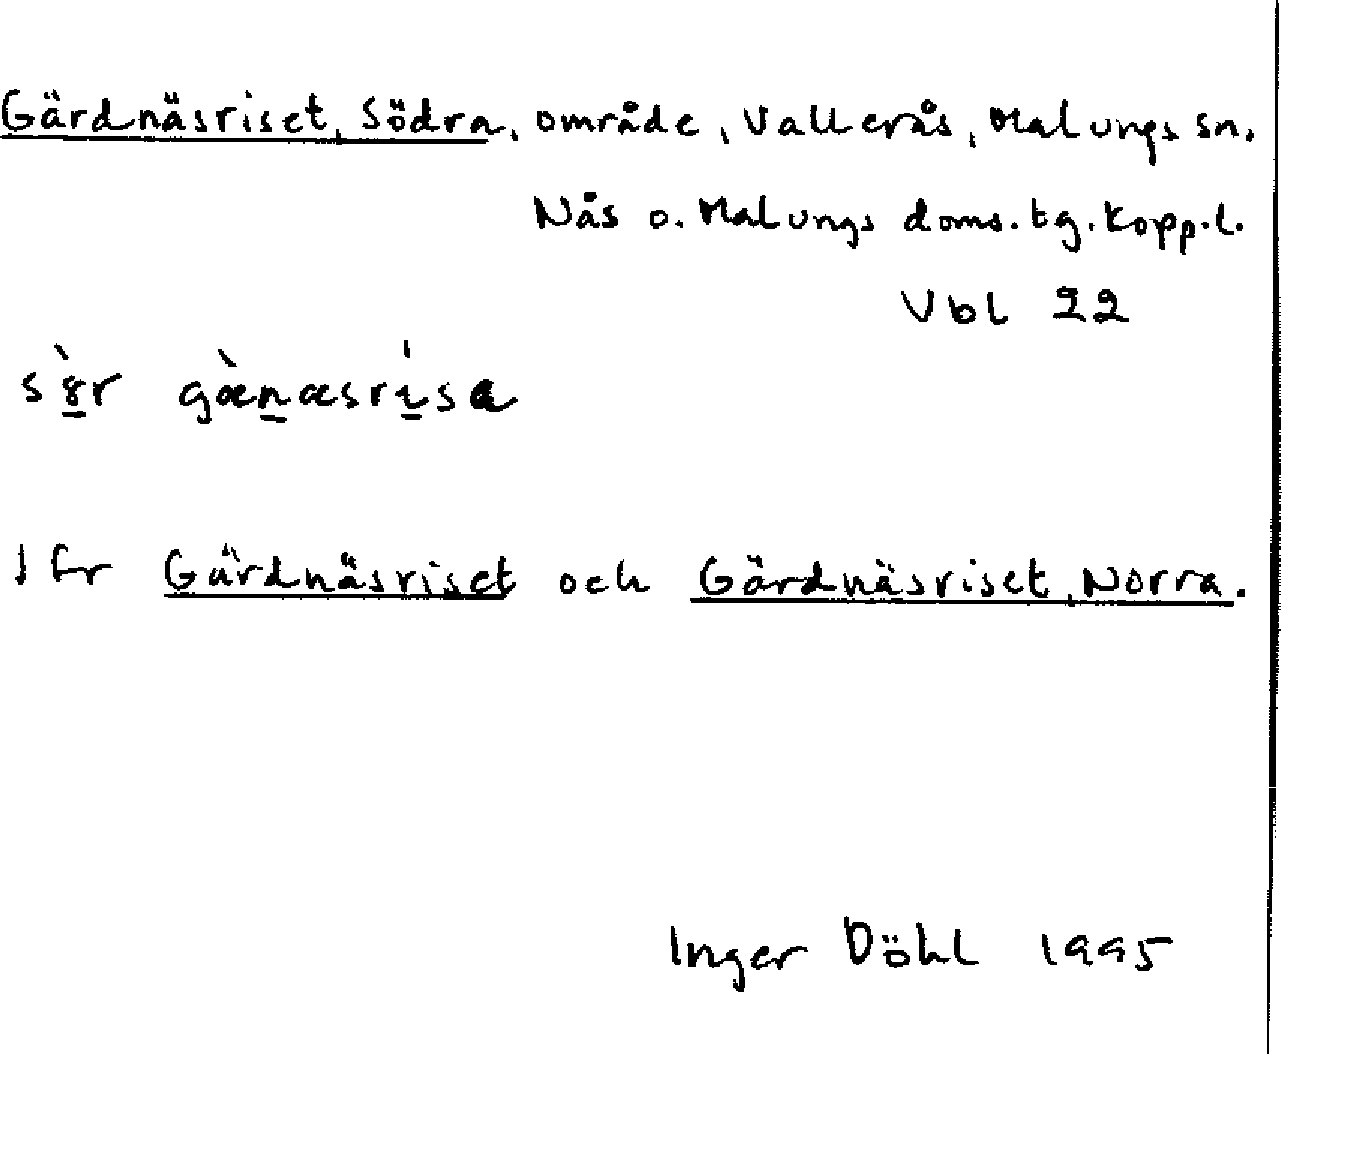 Gärdnäsriset, Södra, område, Vallerås, Malungs sn.
Nås o. Malungs doms.tg. Kopp.l.
Vbl 22
Jfr Gärdnäsriset och Gärdnäsriset, Norra.
Inger Döhl 1995